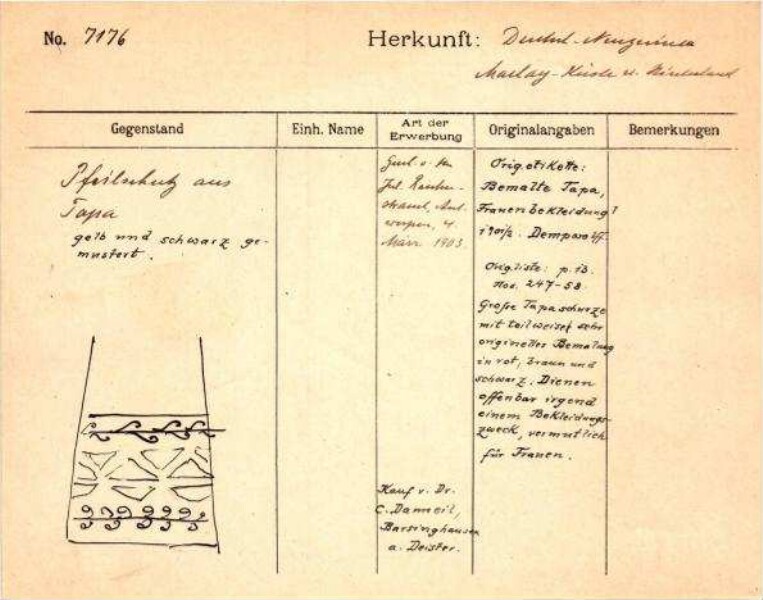 No. 7176
Herkunft: Deutsch-Neuguinea
Maclay-Küste u. Hinterland
Gegenstand
Einh. Name
Art der
Erwerbung
Originalangaben
Bemerkungen
Pfeilschutz aus
Tapa
gelb und schwarz ge-
mustert.
v.
Jul.
Ant
werpen, 4.
März 1903
Kauf v. Dr.
C. Danneil,
Barsinghausen
a. Deister.
Orig.etikette:
Bemalte Tapa,
Frauenbekleidung?
Dempwolff.
Orig.liste: p. 13.
Nos. 247-58
Große Tapaschurze
mit teilweiser sehr
origineller Bemalung
in rot, braun und
schwarz. Dienen
offenbar irgend
einem Bekleidungs-
zweck, vermutlich
für Frauen.